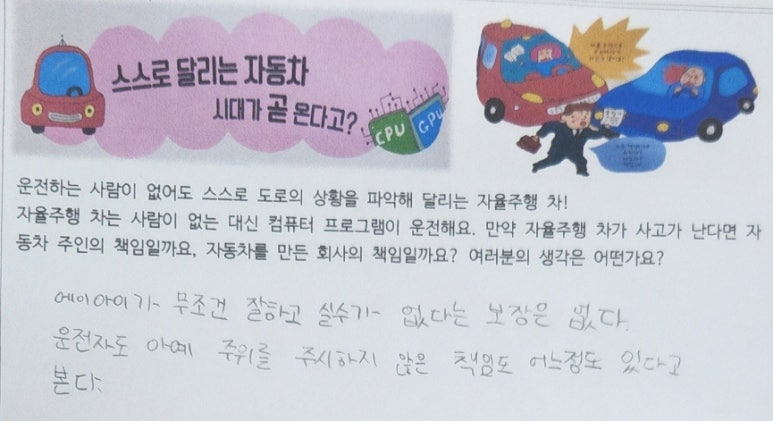 스스로 달리는 자동차
시대가 곧 온다고?
CPU
GPU
운전하는 사람이 없어도 스스로 도로의 상황을 파악해 달리는 자율주행 차!
자율주행 차는 사람이 없는 대신 컴퓨터 프로그램이 운전해요. 만약 자율주행 차가 사고가 난다면 자
동차 주인의 책임일까요, 자동차를 만든 회사의 책임일까요? 여러분의 생각은 어떤가요?
에이아이가 무조건 잘하고 실수가 없다는 보장은 없다.
운전자도 아예 주위를 주시하지 않은 책임도 어느정도 있다고
본다.